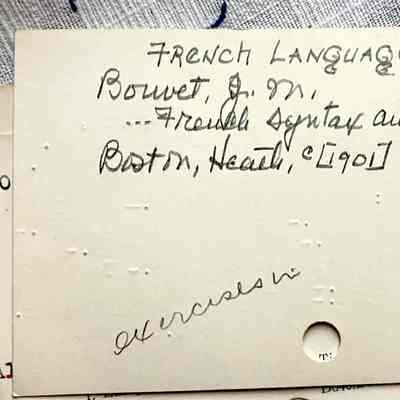 FRENCH LANGUAG
Bouvet, J. M.
...French Syntax an
Boston, Heath, c[1901]
exercises in
T: